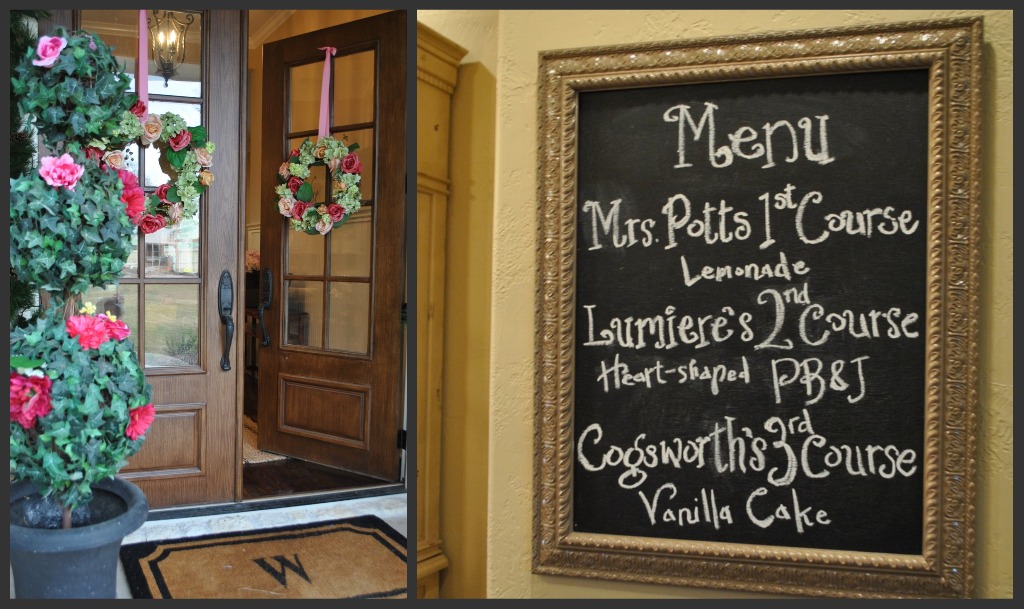 W
Menu
Mrs. Potts 1st Course
Lemonade
Lumiere's 2nd Course
Heart-shaped PB&J
Cogsworth's 3rd Course
Vanilla Cake